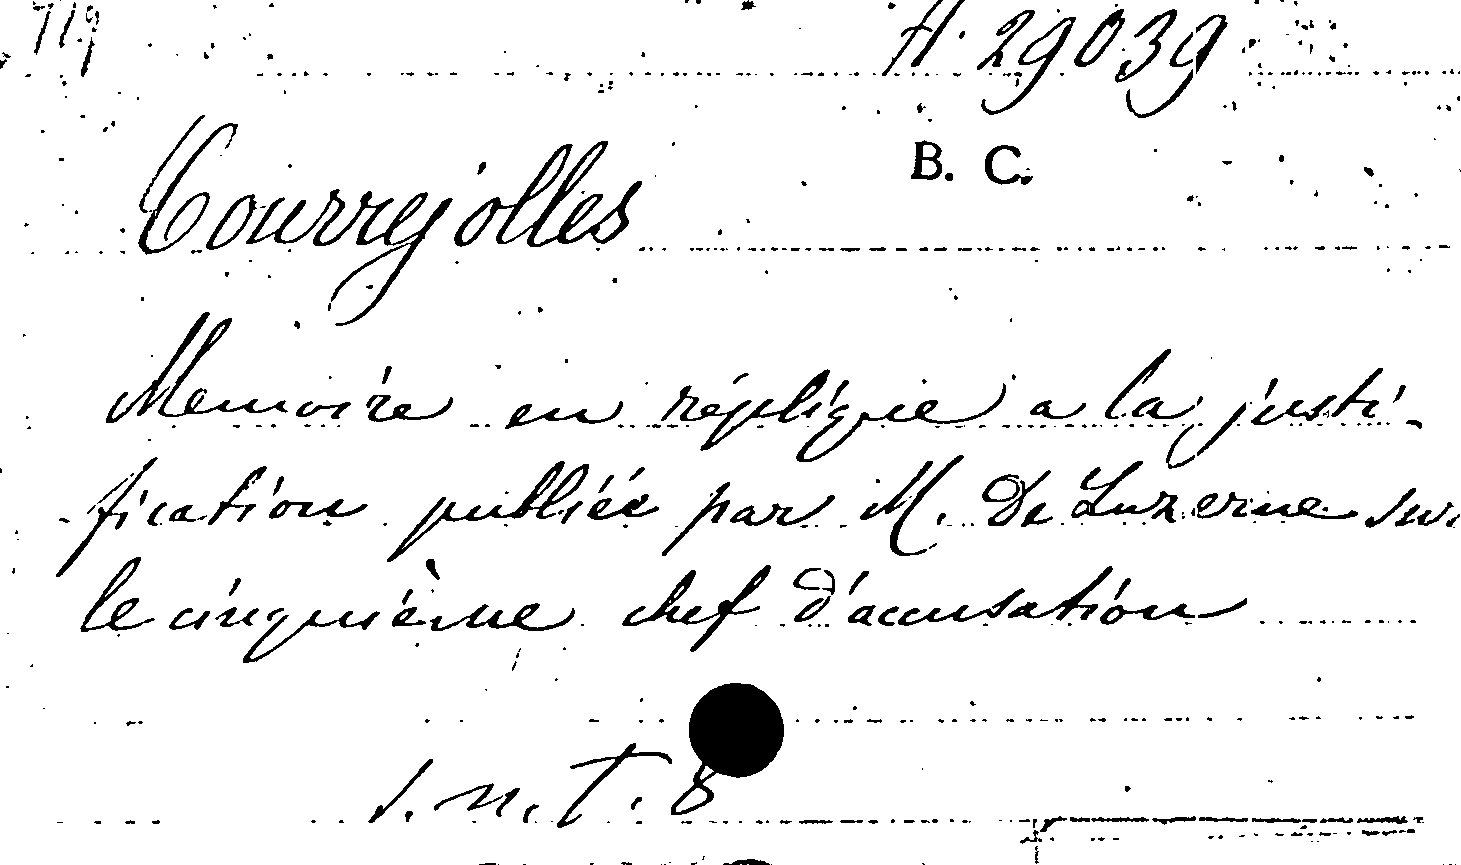 719
A. 29039
B. C.
Courrejolles
Memoire en réplique a la justi-
fication publiée par M. De Luzerne sur
le cinquième chef d'accusation
s.n.T. 8